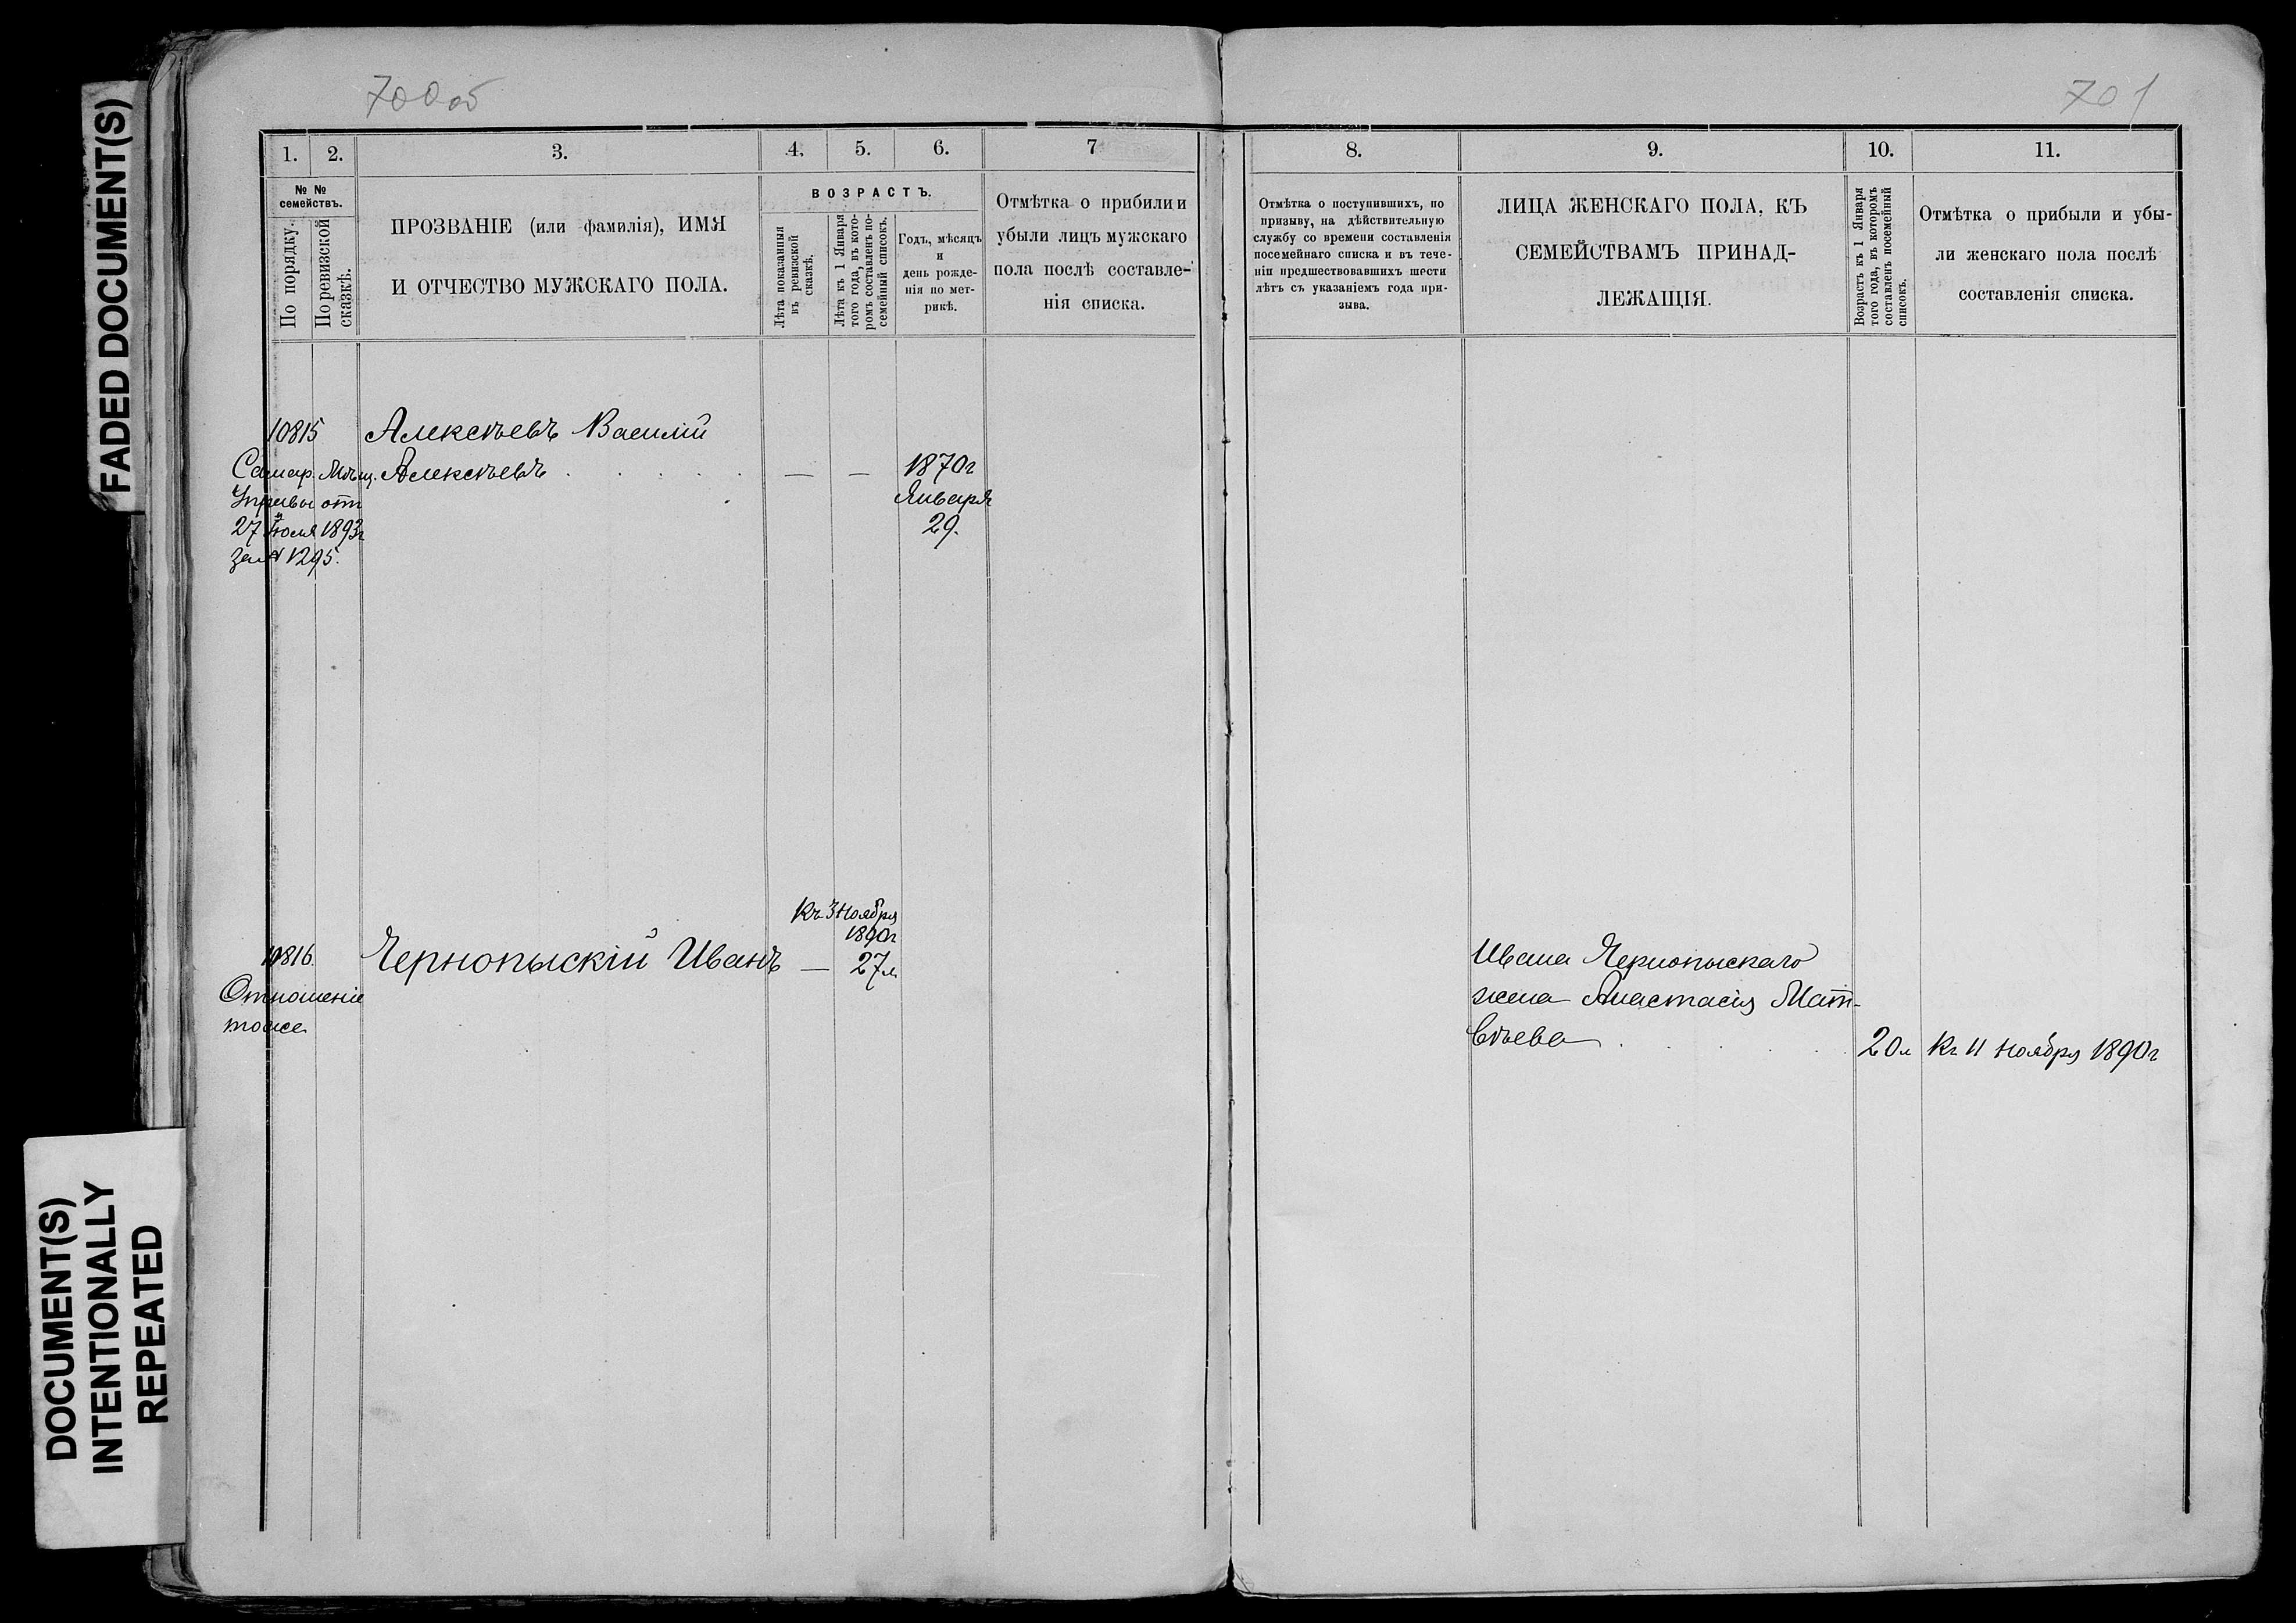 FADED DOCUMENT(S)
DOCUMENT(S)
INTENTIONALLY
REPEATED
700об
701
1. 2. 3. 4. 5. 6. 7
№ №
семействъ.
По порядку.
По ревизской
сказкѣ.
ПРОЗВАНІЕ (или фамилія), ИМЯ
И ОТЧЕСТВО МУЖСКАГО ПОЛА.
ВОЗРАСТЪ.
Лѣта показанныя
въ ревизской
сказкѣ.
Лѣта къ 1 Января
того года, въ кото-
ромъ составленъ по-
семейный списокъ.
Годъ, мѣсяцъ
и
день рожде-
нія по мет-
рикѣ.
Отмѣтка о прибили и
убыли лицъ мужскаго
пола послѣ составле-
нія списка.
8. 9. 10. 11.
Отмѣтка о поступившихъ, по
призыву, на дѣйствительную
службу со времени составленія
посемейнаго списка и въ тече-
ніи предшествовавшихъ шести
лѣтъ съ указаніемъ года при-
зыва.
ЛИЦА ЖЕНСКАГО ПОЛА, КЪ
СЕМЕЙСТВАМЪ ПРИНАД-
ЛЕЖАЩІЯ.
Возрастъ къ 1 Января
того года, въ которомъ
составленъ посемейный
списокъ.
Отмѣтка о прибыли и убы-
ли женскаго пола послѣ
составленія списка.
10815 Алексѣевъ Василій
Самар. Мѣщ. Алексѣевъ . . . . . — — 1870г
Управы отъ Января
27 Іюля 1893г 29.
за № 1295.
Къ 3 Ноября
1890г
10816. Чернопыскій Иванъ — 27 л
Отношеніе
тоже
Ивана Чернопыскаго
жена Анастасія Мат-
вѣева . . . . . 20 л Къ 11 Ноября 1890г